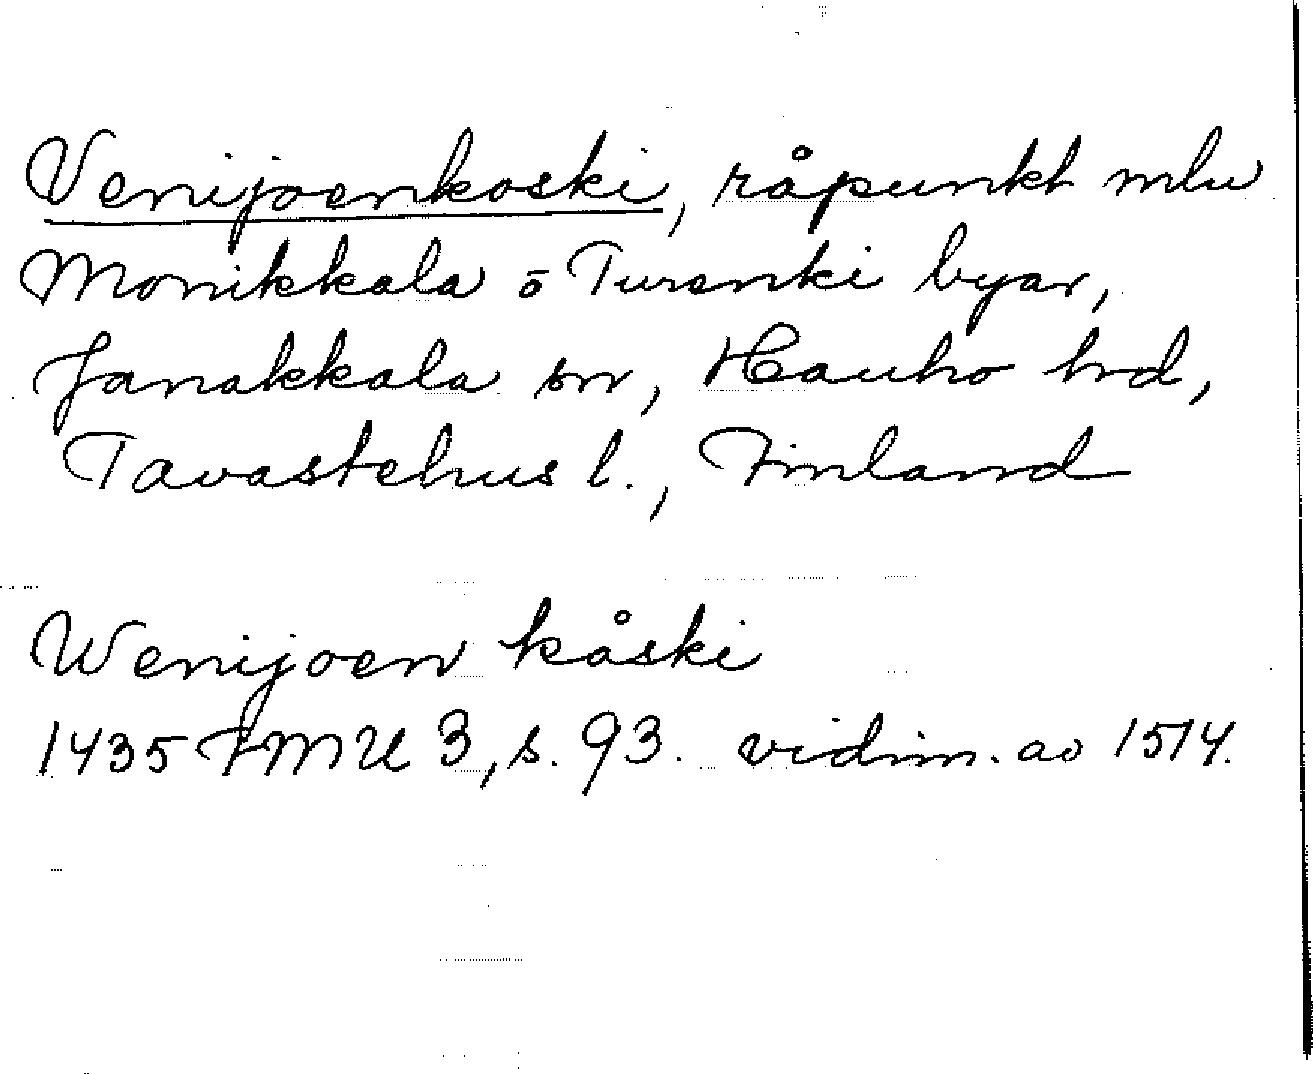 Venijoenkoski, råpunkt mlu
Monikkala o Turenki byar,
Janakkala sn, Hauho hrd,
Tavastehus l., Finland
Wenijoen kåski
1435 FMU 3, s. 93. vidim. ao 1514.